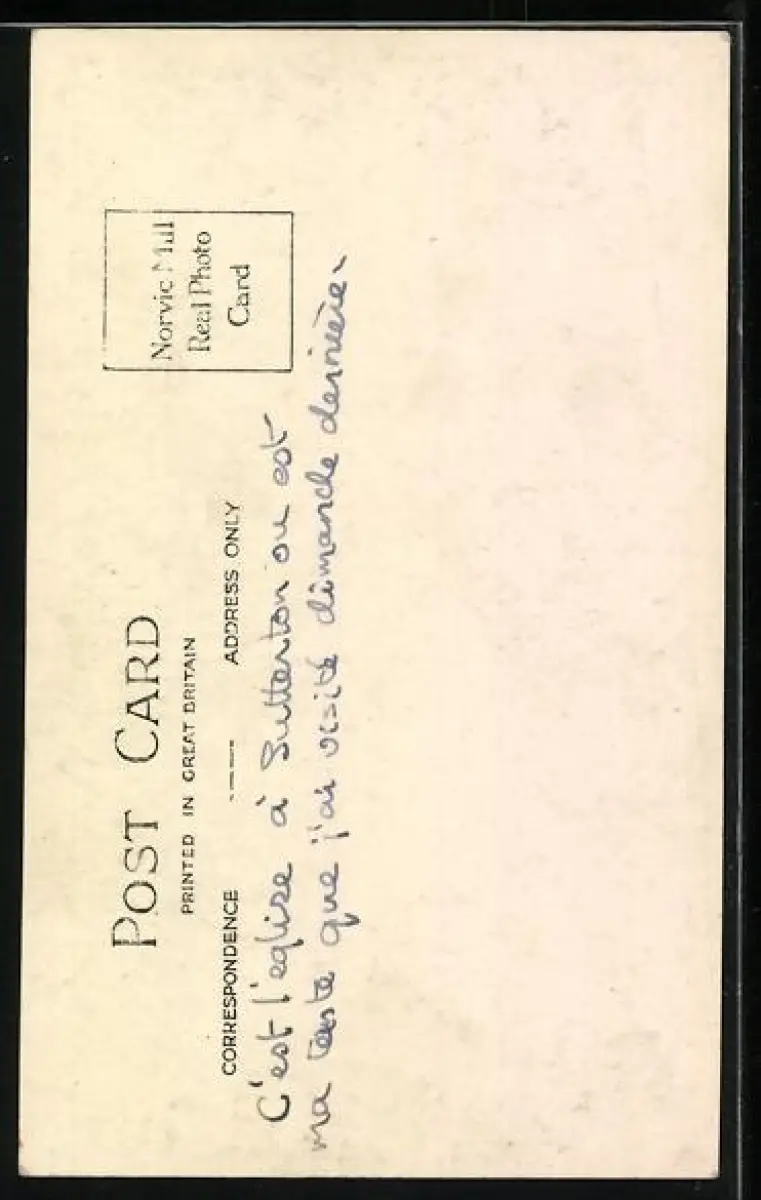 POST CARD
PRINTED IN GREAT BRITAIN
Norvic
Real Photo
Card
CORRESPONDENCE ADDRESS ONLY
C'est l'eglise à Sutterton ou est
ma que j'ai visité dimanche dernière.